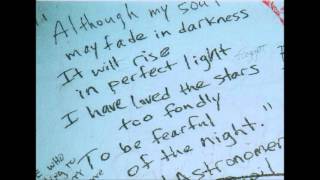 Although my soul
may fade in darkness
It will rise
in perfect light
I have loved the stars
too fondly
To be fearful
of the night."
Astronomer
who